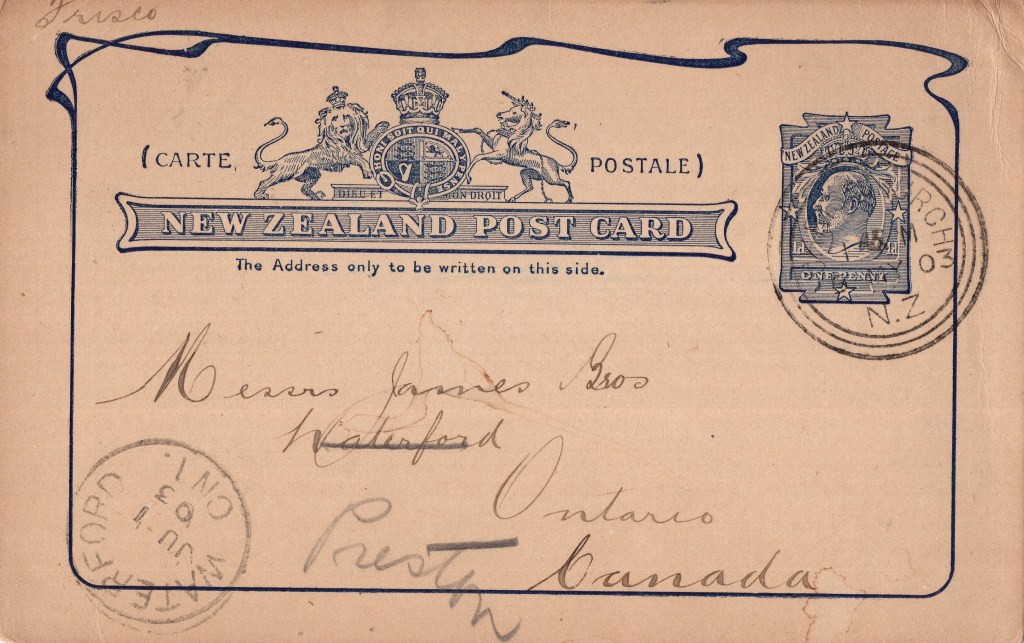 Frisco
(CARTE POSTALE)
HONI SOIT QUI MAL Y PENSE
DIEU ET MON DROIT
NEW ZEALAND POST CARD
The Address only to be written on this side.
NEW ZEALAND POSTAGE
1d 1d
ONE PENNY
N.Z
Messrs James Bros
Waterford
Ontario
Canada
Preston
WATERFORD ONT.
JU 1
03